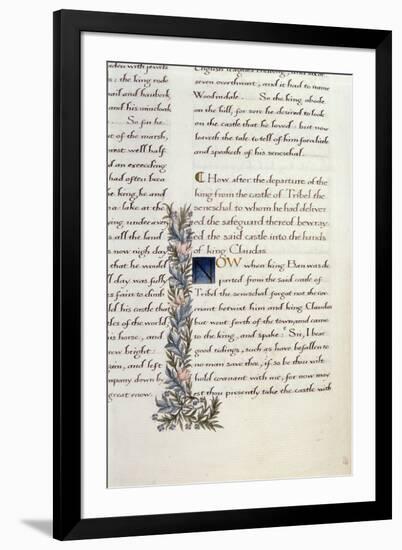 aden with jewels
: the king rode
nail and hauberk
and his minchoah
So far he
t of the marsh,
rest well half
d an exceeding
had often bea
he king, he and
a lake at the
ying under an
all the land
s now nigh day
that he would
l day was fully
s fain to climb
ld his castle that
tles of the world
is horse, and
ew bright:
zien, and left
mpany down by
great enow.
seven overthwart, and it had to name
Woodmdale So the king abode
on the hill, for sore he desired to look
on the castle that he loved: but now
leaveth the tale to tell of him forawhile
and speaketh of his seneschal.
How after the departure of the
king from the castle of Tribel the
seneschal to whom he had deliver
ed the safeguard thereof bewray
ed the said castle into the hands
of king Claudas.
NOW when king Ban was de
parted from the said castle of
Tribel the seneschal forgat not the co
nant betwixt him and king Claudas
but went forth of the town, and came
to the king, and spake: "Sir, I bear
good tidings, such as have befallen to
no man save thee, if so be thou wilt
hold covenant with me, for now may
est thou presently take the castle with